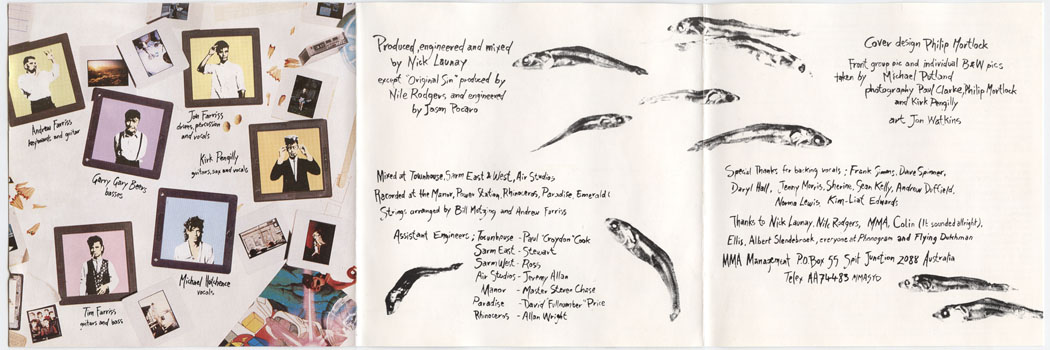 Andrew Farriss
keyboards and guitar
Jon Farriss
drums, percussion
and vocals
Garry Gary Beers
basses
Kirk Pengilly
guitars, sax and vocals
Michael Hutchence
vocals
Tim Farriss
guitars and bass
Produced, engineered and mixed
by Nick Launay
except "Original Sin" produced by
Nile Rodgers, and engineered
by Jason
Mixed at Townhouse, Sarm East & West, Air Studios
Recorded at the Manor, Power Station, Rhinoceros, Paradise, Emerald
Strings arranged by Bill Motzing and Andrew Farriss
Assistant Engineers; Townhouse - Paul "Croydon" Cook
Sarm East - Stewart
Sarm West - Ross
Air Studios - Jeremy Allan
Manor - Master Steve Chase
Paradise - David Price
Rhinoceros - Allan Wright
Cover design Philip Mortlock
Front group pic and individual B&W pics
taken by Michael Putland
photography Paul Clarke, Philip Mortlock
and Kirk Pengilly
art Jon Watkins
Special Thanks for backing vocals - Frank Simms, Dave Spinner,
Daryl Hall, Jenny Morris, Sherine, Sean Kelly, Andrew Duffield,
Norma Lewis, Kim-Liat Edwards
Thanks to Nick Launay, Nile Rodgers, MMA, Colin (It sounded allright),
Ellis, Albert Slendebroek, everyone at Phonogram and Flying Dutchman
MMA Management P.O.Box 55 Spit Junction 2088 Australia
Telex AA74483 MMASYD